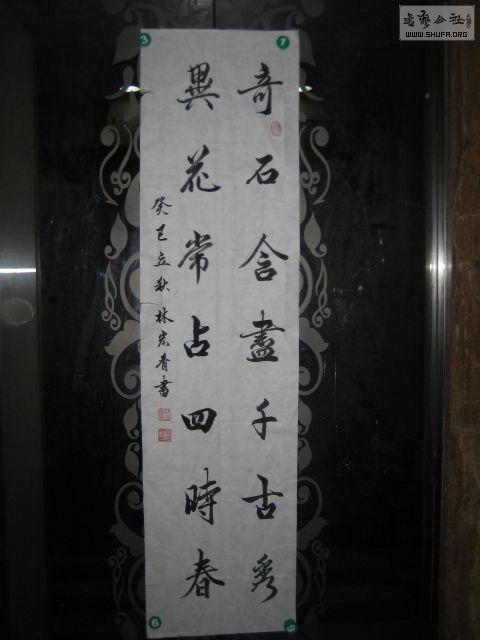 奇石含盡千古秀
異花常占四時春
癸巳立秋林宏青書
書藝公社
WWW.SHUFA.ORG